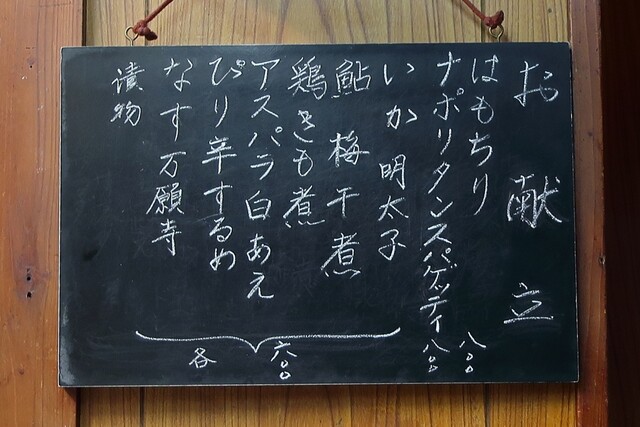 お献立
はもちり 八〇〇
ナポリタンスパゲッティ 八〇〇
いか明太子
鮎梅干煮
鶏きも煮
アスパラ白あえ
ぴり辛するめ
なす万願寺
漬物
各 六〇〇